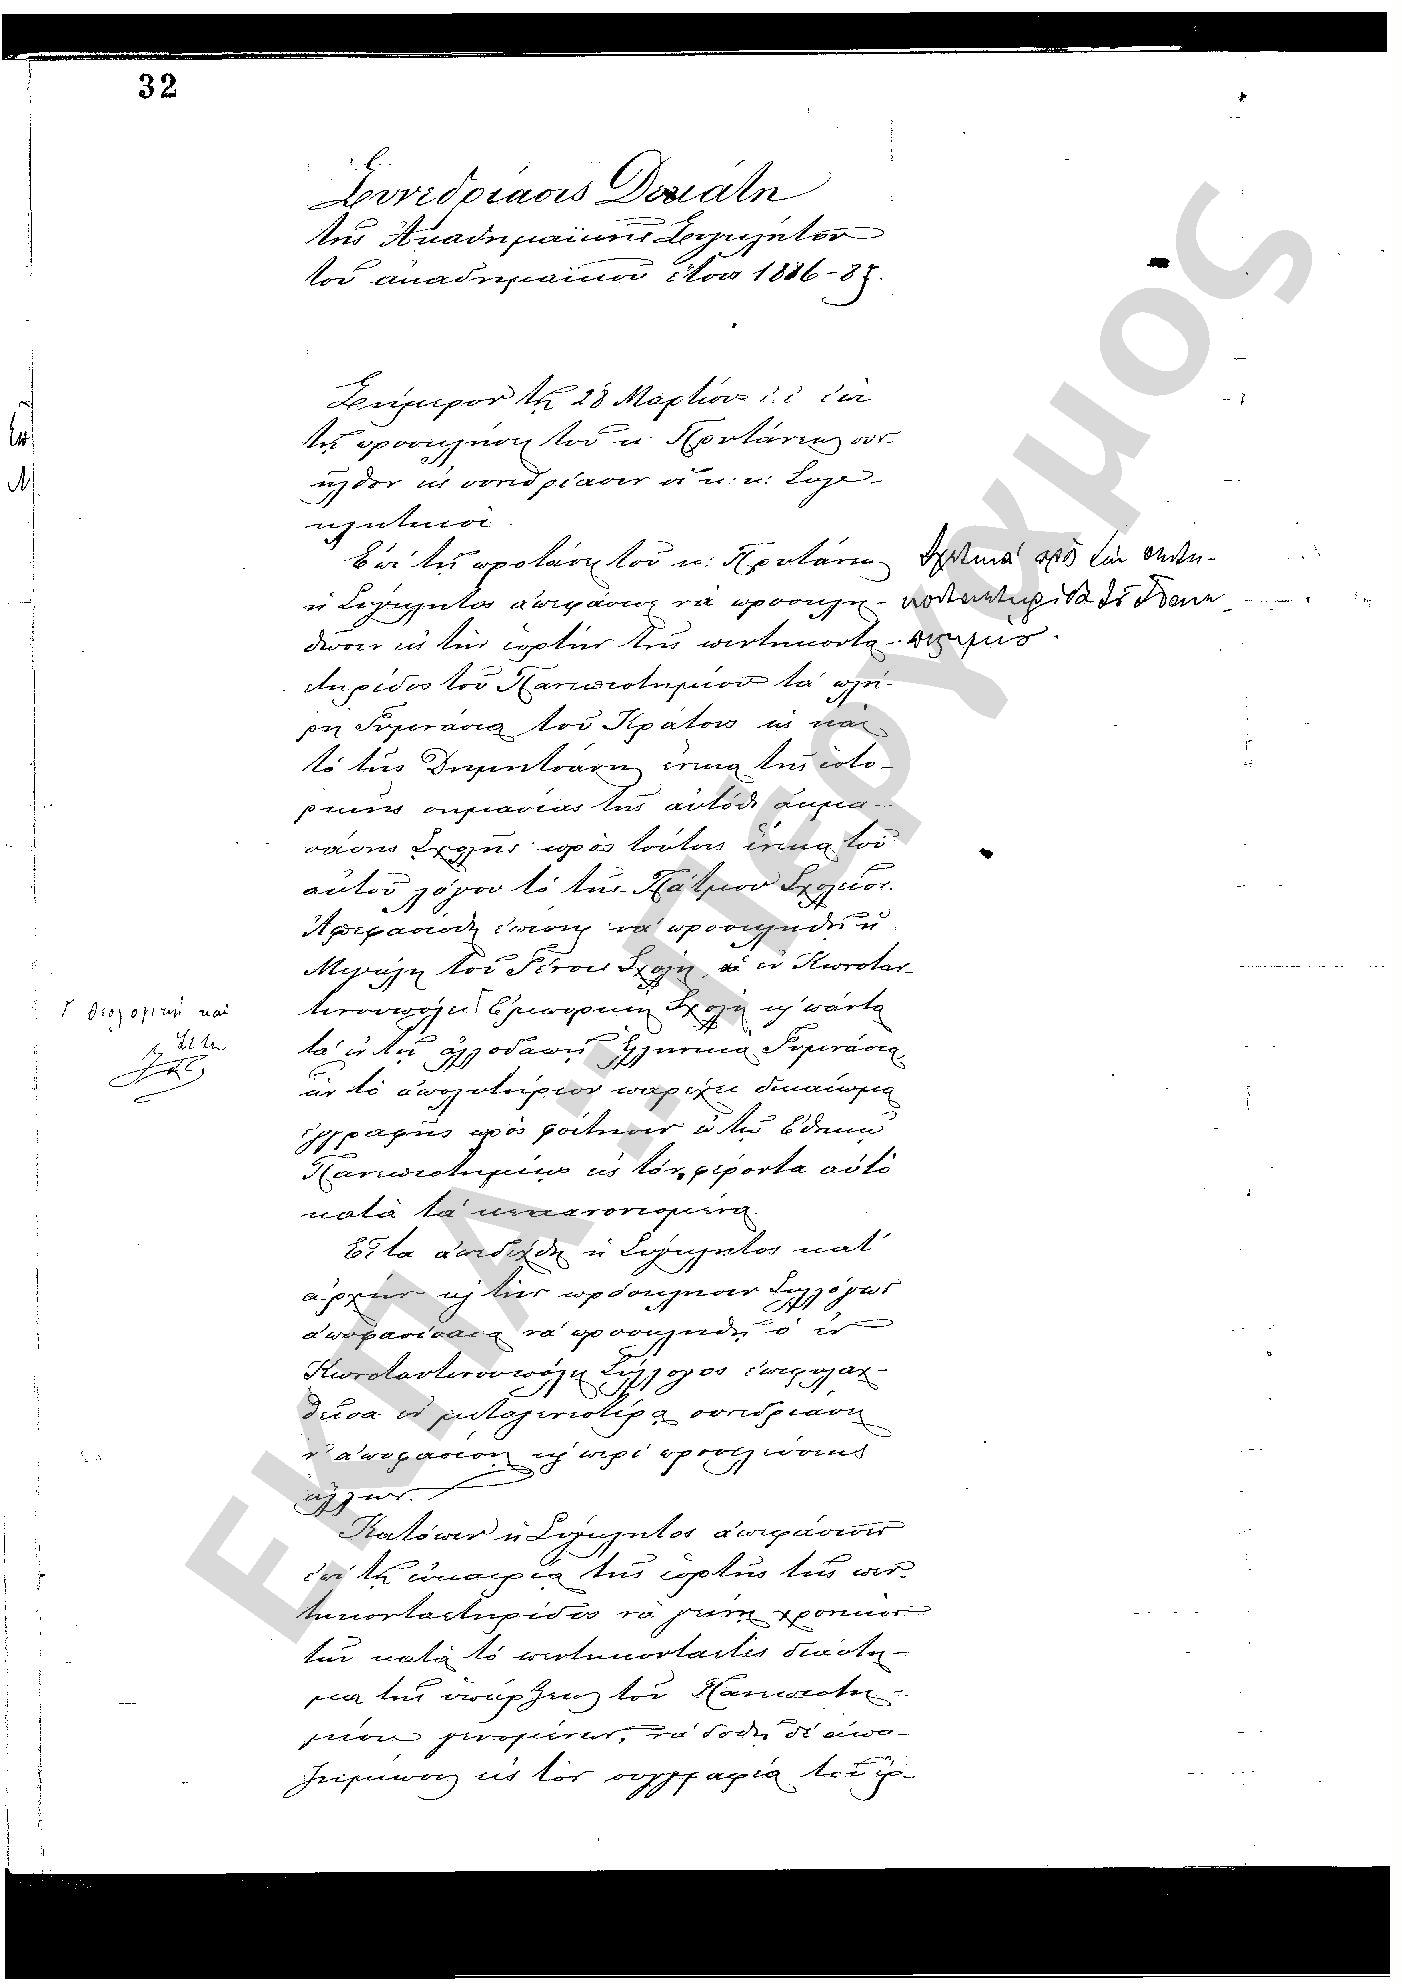 32
Συνεδρίασις Δεκάτη
τῆς Ἀκαδημαϊκῆς Συγκλήτου
τοῦ ἀκαδημαϊκοῦ ἔτους 1886-87.
Σήμερον τῇ 28 Μαρτίου ἐ. ἐ. ἐπὶ
τῇ προσκλήσει τοῦ κ. Πρυτάνεως συν-
ῆλθον εἰς συνεδρίασιν οἱ κ. κ. Συγκ-
λητικοί.
Ἐπὶ τῇ προτάσει τοῦ κ. Πρυτάνεως
ἡ Σύγκλητος ἀπεφάσισε νὰ προσκλη-
θῶσιν εἰς τὴν ἑορτὴν τῆς πεντηκοντα-
ετηρίδος τοῦ Πανεπιστημίου τὰ πλή-
ρη Γυμνάσια τοῦ Κράτους ὡς καὶ
τὸ τῆς Δημητσάνης ἕνεκα τῆς ἱστο-
ρικῆς σημασίας τῆς αὐτόθι ἀκμα-
σάσης Σχολῆς πρὸς τούτοις ἕνεκα τοῦ
αὐτοῦ λόγου τὸ τῆς Πάτμου Σχολεῖον.
Ἀπεφασίσθη ἐπίσης νὰ προσκληθῇ ἡ
Μεγάλη τοῦ Γένους Σχολή, αἱ ἐν Κωνσταν-
τινουπόλει Γ Ἐμπορικὴ Σχολὴ κ' πάντα
τὰ ἐν τῇ ἀλλοδαπῇ Ἑλληνικὰ Γυμνάσια,
ὧν τὸ ἀπολυτήριον παρέχει δικαίωμα
ἐγγραφῆς πρὸς φοίτησιν ἐν τῷ Ἐθνικῷ
Πανεπιστημίῳ εἰς τὸν φέροντα αὐτὸ
κατὰ τὰ κεκανονισμένα.
Εἶτα ἀπεδέχθη ἡ Σύγκλητος κατ'
ἀρχὴν κ' τὴν πρόσκλησιν Συλλόγων
ἀποφασίσασα νὰ προσκληθῇ ὁ ἐν
Κωνσταντινουπόλει Σύλλογος ἐπιφυλαχ-
θεῖσα ἐν μεταγενεστέρᾳ συνεδριάσει
ν' ἀποφασίσῃ κ' περὶ προσελεύσεως
ἄλλων.
Κατόπιν ἡ Σύγκλητος ἀπεφάσισεν
ἐπὶ τῇ εὐκαιρίᾳ τῆς ἑορτῆς τῆς πεν-
τηκονταετηρίδος νὰ γείνῃ χρονικὸν
τῶν κατὰ τὸ πεντηκονταετὲς διάστη-
μα τῆς ὑπάρξεως τοῦ Πανεπιστη-
μίου γενομένων, νὰ δοθῇ δὲ ἀπο-
ζημίωσις εἰς τὸν συγγραφέα τοῦ ἔρ-
Σχετικὰ πρὸς τὴν πεντη-
κονταετηρίδα τοῦ Πανε-
πιστημίου.
Γ Θεολογικὴ καὶ